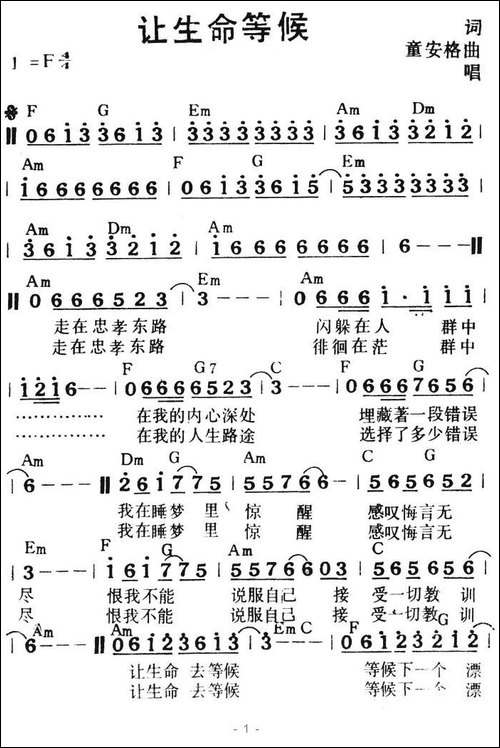 让生命等候
1=F4/4
词
童安格曲
唱
F G Em Am Dm
‖0613 3613|33333333|3613 3212|
Am F G Em
|16666666|0613 3615|53333333|
Am Dm Am
|3613 3212|16666666|6--‖
Am Em Am
‖0666523|3---|0666 1·111|
走在忠孝东路 闪躲在人 群中
走在忠孝东路 徘徊在茫 群中
F G7 C F
|1216--|06666523|3---|06667656|
在我的内心深处 埋藏著一段错误
在我的人生路途 选择了多少错误
Am Dm G Am C G
|6---‖261775|55766--|565652|
我在睡梦 里 惊 醒 感叹悔言无
我在睡梦 里 惊 醒 感叹悔言无
Em F G Am C
|3---|161775|5576603|565656|
尽 恨我不能 说服自己 接 受一切教 训
尽 恨我不能 说服自己 接 受一切教 训
Am Am Em C F G
|6---‖06123613|3---|06123612|
让生命 去等候 等候下一个 漂
让生命 去等候 等候下一个 漂
- 1 -